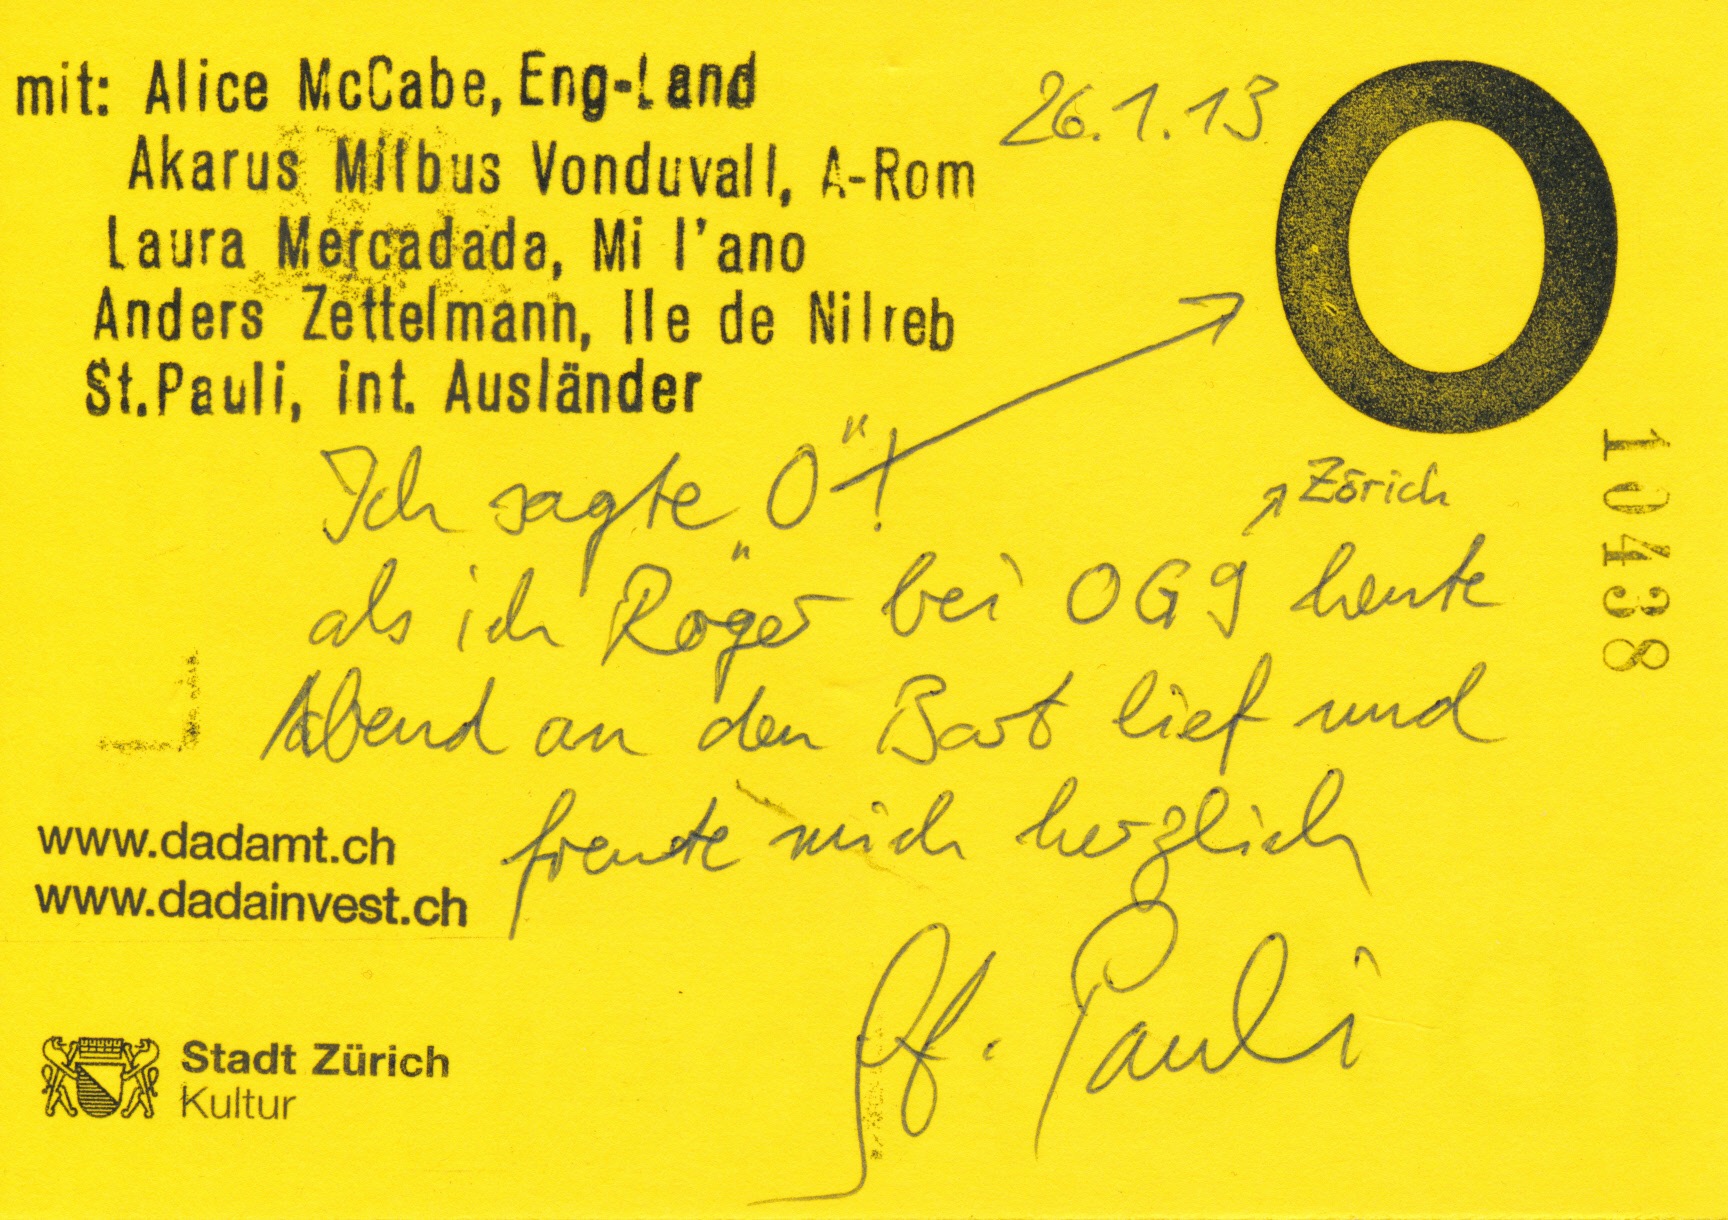 mit: Alice McCabe, Eng-Land
26.1.13
O
Akarus Milbus Vonduvall, A-Rom
Laura Mercadada, Mi l'ano
Anders Zettelmann, Ile de Nilreb
St.Pauli, int. Ausländer
10438
Ich sagte Ö!
Zörich
als ich Röger bei OG9 heute
Abend an den Bart lief und
freute mich herzlich
www.dadamt.ch
www.dadainvest.ch
St. Pauli
Stadt Zürich
Kultur